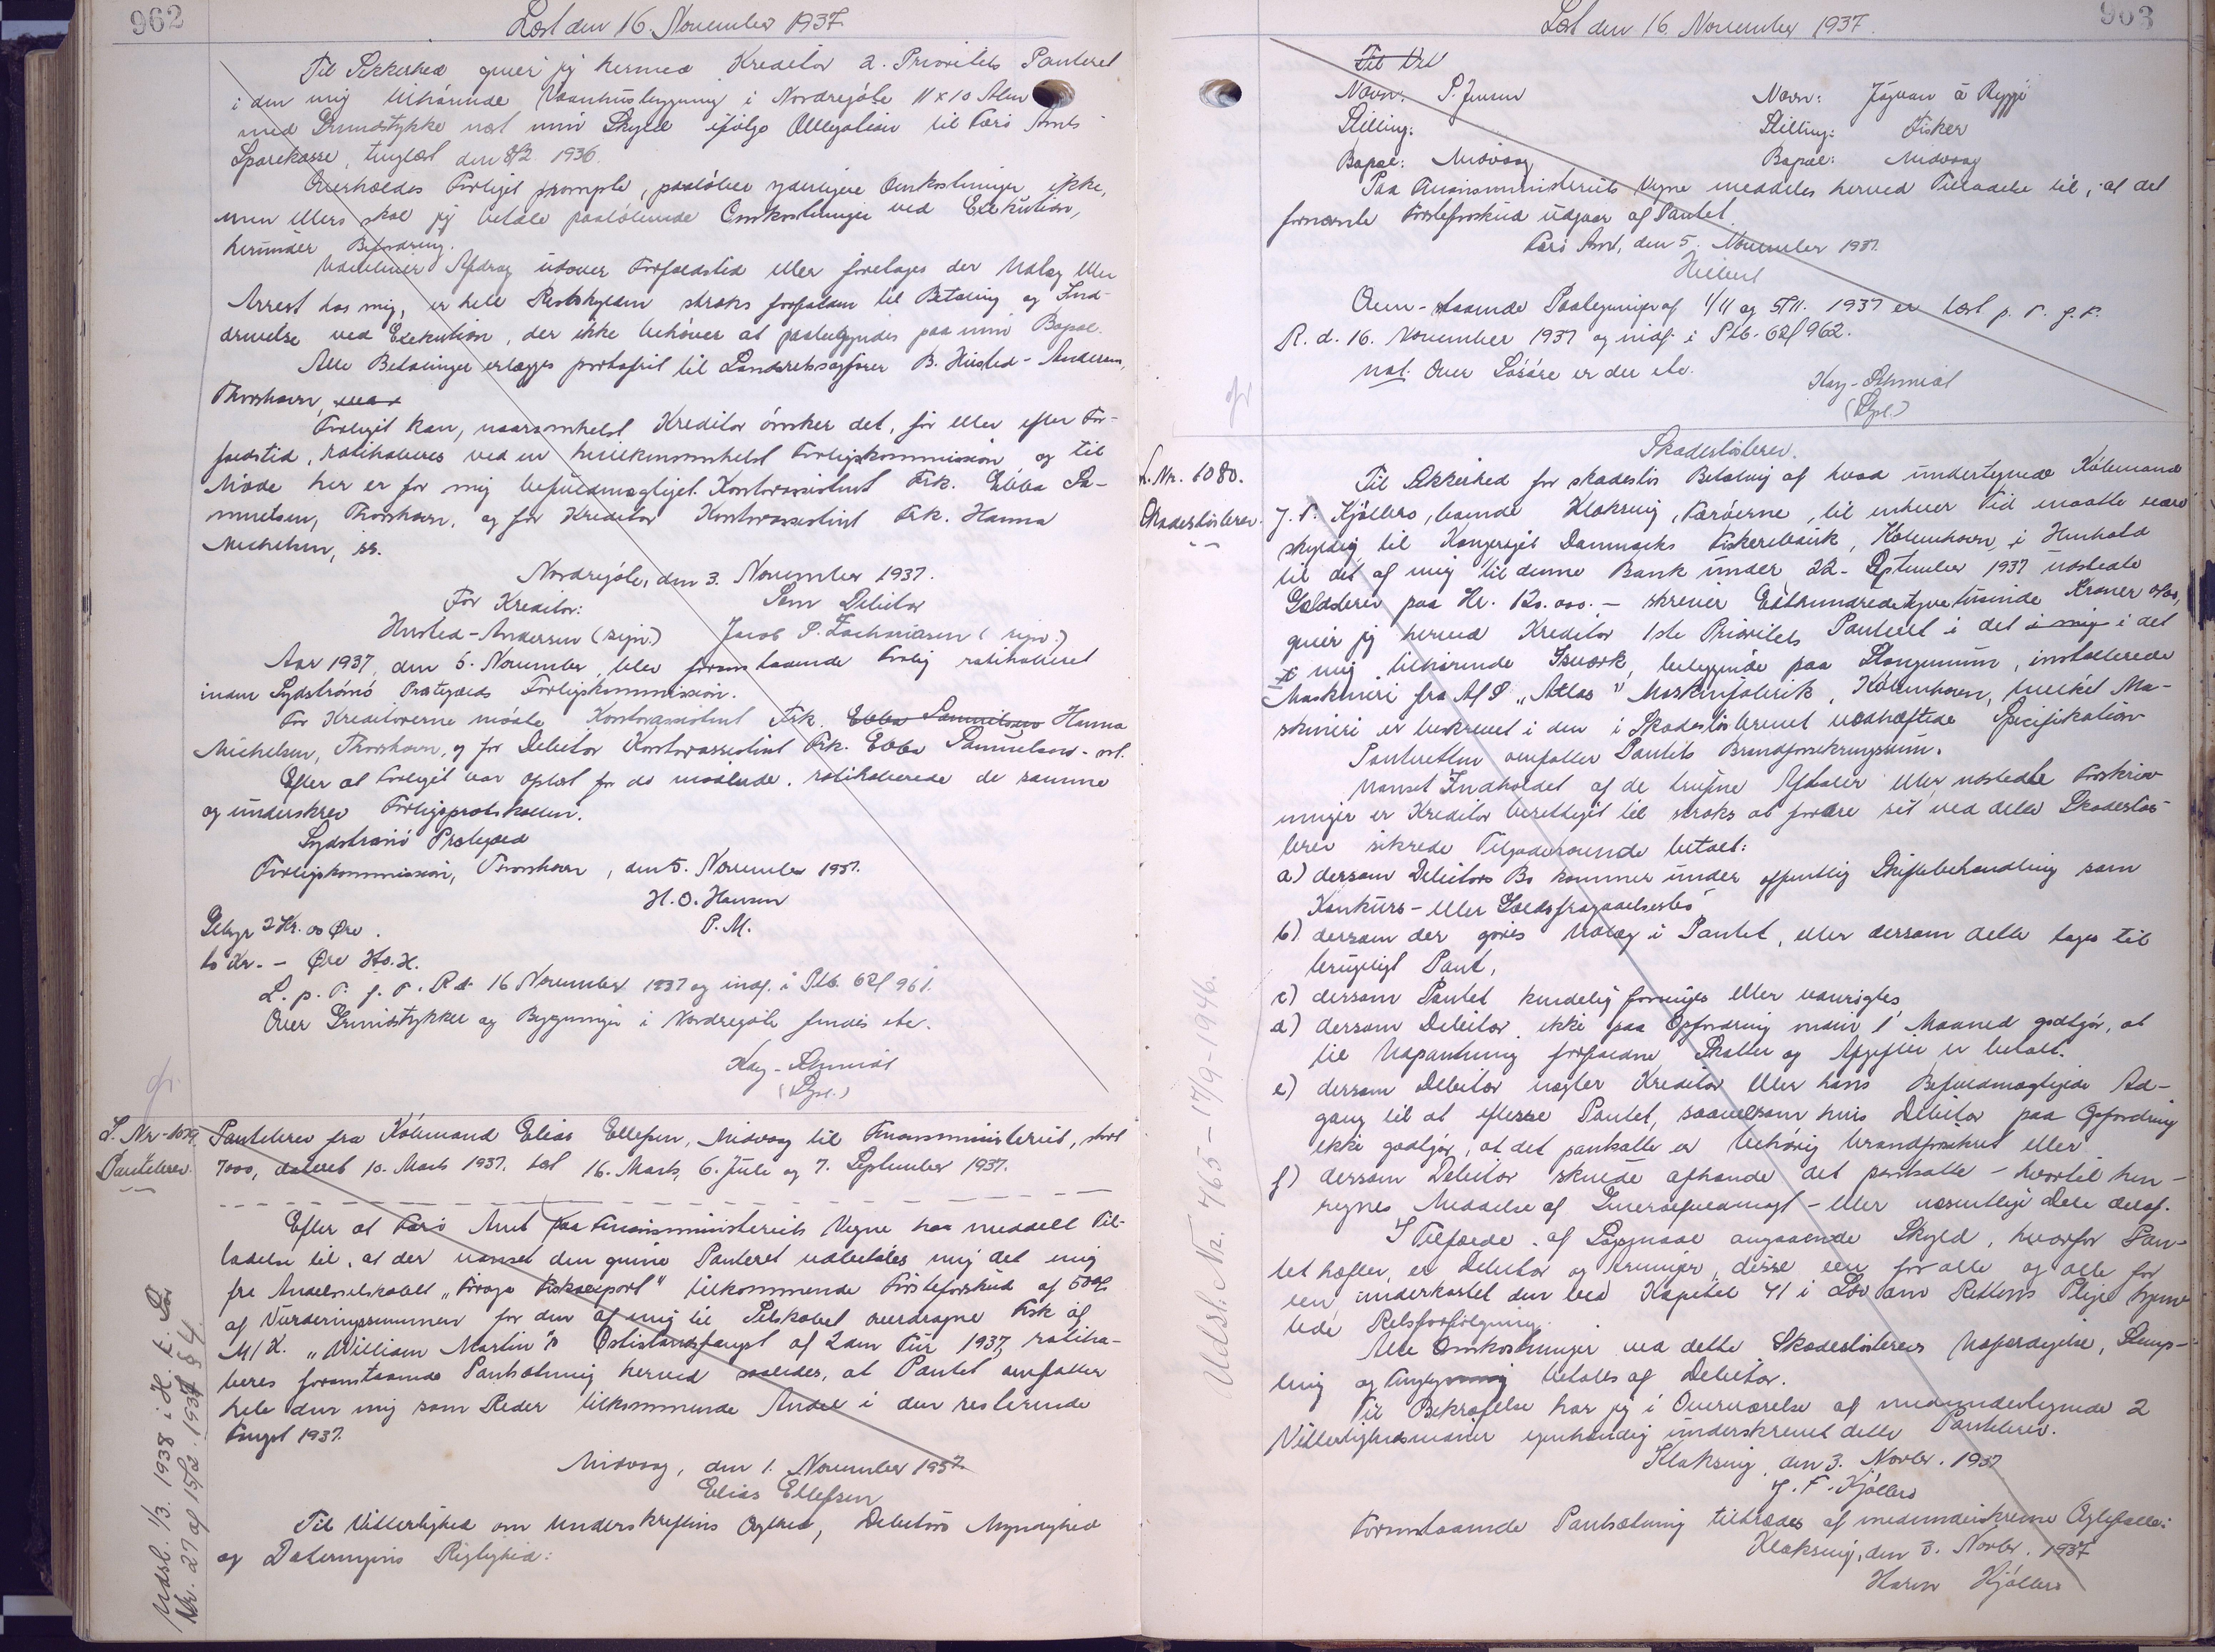 962
Læst den 16. November 1937.
Til Sikkerhed giver jeg hermed Kreditor 2. Prioritets Panteret
i den mig tilhørende Vaanhusbygning i Nordregøte 11 x 10 Alen
med Grundstykke næst min Skyld ifølge Obligation til Færø Amts
Sparekasse, tinglæst den 8/2 1936.
Overholdes Forliget prompte, paaløber yderligere Omkostninger ikke,
men ellers skal jeg betale paaløbende Omkostninger ved Exekution,
herunder Befordring.
Udebliver Afdrag udover Forfaldstid eller foretages der Udlæg eller
Arrest hos mig, er hele Restskylden straks forfalden til Betaling og Ind-
drivelse ved Exekution, der ikke behøver at paabegyndes paa min Bopæl.
Alle Betalinger erlægges portofrit til Landsretssagfører B. Husted-Andersen,
Thorshavn,
Forliget kan, naarsomhelst Kreditor ønsker det, før eller efter For-
faldstid, ratihaberes ved en hvilkensomhelst Forligskommission og til
Møde her er for mig befuldmægtiget Kontorassistent Frk. Ebba Sa-
muelsen, Thorshavn, og for Kreditor Kontorassistent Frk. Hanna
Michelsen, ss.
Nordregøte, den 3. November 1937.
For Kreditor: Som Debitor
Husted-Andersen (sign.) Jacob P. Zachariasen (sign.)
Aar 1937, den 5. November, blev foranstaaende Forlig ratihaberet
inden Sydstrømø Præstegælds Forligskommission.
For Kreditorerne mødte Kontorassistent Frk. Ebba Samuelsen Hanna
Michelsen, Thorshavn, og for Debitor Kontorassistent Frk. Ebba Samuelsen - sst.
Efter at Forliget var oplæst for de mødende, ratihaberede de samme
og underskrev Forligsprotokollen.
Sydstrømø Præstegæld
Forligskommission, Thorshavn, den 5. November 1937.
H. O. Hansen
P. M.
Gebyr 2 Kr. 00 Øre.
to Kr. - Øre H.O.H.
L. p. T. f. F. R. d. 16 November 1937 og indf. i Ptb. 62 f 961.
Over Grundstykke og Bygninger i Nordregøte findes etc.
Kay-Schmidt
(Dpt.)
gr.
L. Nr. 1079.
Pantebrev
Pantebrev fra Købmand Elias Ellefsen, Midvaag til Finansministeriet, stort
7000, dateret 10. Marts 1937. læst 16. Marts, 6. Juli og 7. September 1937.
Efter at Færø Amt paa Finansministeriets Vegne har meddelt Til-
ladelse til, at der uanset den givne Panteret udbetales mig det mig
fra Andelsselskabet "Føroya Fiskaexport" tilkommende Førsteforskud af 50%
af Vurderingssummen for den af mig til Selskabet overdragne Fisk af
M/K. "William Martin"s Østislandsfangst af 2den Tur 1937, ratiha-
beres foranstaaende Pantsætning herved saaledes, at Pantet omfatter
hele den mig som Reder tilkommende Andel i den resterende
Fangst 1937.
Midvaag, den 1. November 1937.
Elias Ellefsen
Til Vitterlighed om Underskriftens Ægthed, Debitors Myndighed
og Dateringens Rigtighed:
Udsl. 1/3. 1938 i H. t. Lov
Nr. 27 af 15/2. 1937 § 4.
963
Læst den 16. November 1937.
Til Vit
Navn: P. Jensen Navn: Jógvan á Ryggi
Stilling: Stilling: Fisker
Bopæl: Midvaag Bopæl: Midvaag
Paa Finansministeriets Vegne meddeles herved Tilladelse til, at det
fornævnte Førsteforskud udgaar af Pantet.
Færø Amt, den 5. November 1937.
Hilbert
Oven-staaende Paategninger af 1/11 og 5/11. 1937 er læst p. T. f. F.
R. d. 16. November 1937 og indf. i Ptb. 62 f 962.
not. Over Løsøre er der etc.
Kay-Schmidt
(Dpt.)
gr
L. Nr. 1080.
Skadesløsbrev.
Skadesløsbrev.
Til Sikkerhed for skadesløs Betaling af hvad undertegnede Købmand
J. F. Kjølbro, boende Klaksvig, Færøerne, til enhver Tid maatte være
skyldig til Kongeriget Danmarks Fiskeribank, København, i Henhold
til det af mig til denne Bank under 22. September 1937 udstedte
Gældsbrev paa Kr. 120.000.- skriver Ethundredetyvetusinde Kroner 0/00,
giver jeg herved Kreditor 1ste Prioritets Panteret i det i mig i det
mig tilhørende Isværk, beliggende paa Stangemunn, installerede
Maskineri fra A/S "Atlas" Maskinfabrik, København, hvilket Ma-
skineri er beskrevet i den i Skadesløsbrevet vedhæftede Specifikation
Panteretten omfatter Pantets Brandforsikringssum.
Uanset Indholdet af de trufne Aftaler eller udstedte Forskriv-
ninger er Kreditor berettiget til straks at fordre sit ved dette Skadesløs-
brev sikrede Tilgodehavende betalt:
a) dersom Debitors Bo kommer under offentlig Skiftebehandling som
Konkurs- eller Gældsfragaaelsesbo
b) dersom der gøres Udlæg i Pantet, eller dersom dette tages til
brugeligt Pant,
c) dersom Pantet kendelig forringes eller vanrøgtes
d) dersom Debitor ikke paa Opfordring inden 1 Maaned godtgør, at
til Udpantning forfaldne Skatter og Afgifter er betalt.
e) dersom Debitor nægter Kreditor eller hans Befuldmægtigede Ad-
gang til at efterse Pantet, saavelsom hvis Debitor paa Opfordring
ikke godtgør, at det pantsatte er behørig brandforsikret eller
f) dersom Debitor skulde afhænde det pantsatte - hvortil hen-
regnes Meddelse af Generalfuldmagt - eller væsentlige Dele deraf.
I Tilfælde af Søgsmaal angaaende Skyld, hvorfor Pan-
tet hæfter, er Debitor og Arvinger, disse een for alle og alle for
een underkastet den ved Kapitel 41 i Lov om Rettens Pleje hjem-
lede Retsforfølgning.
Alle Omkostninger ved dette Skadesløsbrevs Udfærdigelse, Stemp-
ling og Tinglysning betales af Debitor.
Til Bekræftelse har jeg i Overværelse af medundertegnede 2
Vitterlighedsmænd egenhændig underskrevet dette Pantebrev.
Klaksvig, den 3. Novbr. 1937
J. F. Kjølbro
Foranstaaende Pantsætning tiltrædes af medunderskrevne Ægtefælle:
Klaksvig, den 3. Novbr. 1937
Hansa Kjølbro
Udsl. Nr. 465 - 17/9-1946.